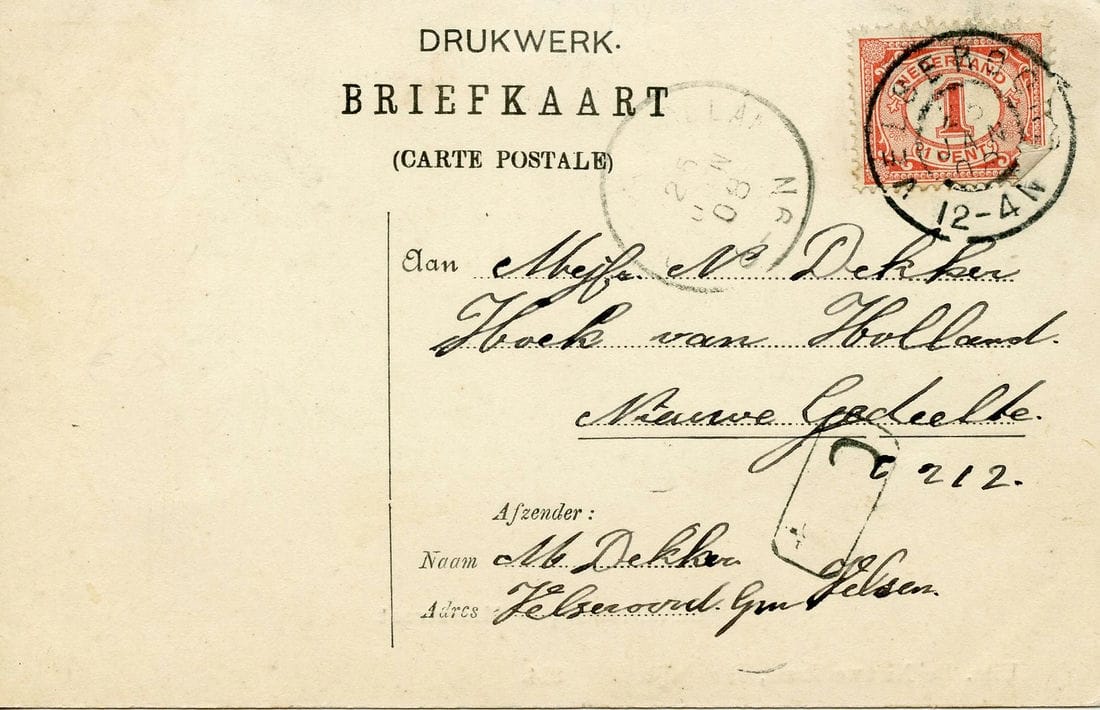 DRUKWERK.
BRIEFKAART
(CARTE POSTALE)
NEDERLAND
1
1 CENT
JAN
12-4N
25
08
Aan Mejfr. N Dekker
Hoek van Holland.
Nieuwe Gedeelte.
C 212.
Afzender:
Naam M Dekker
Adres Velseroord. Gm Velsen.